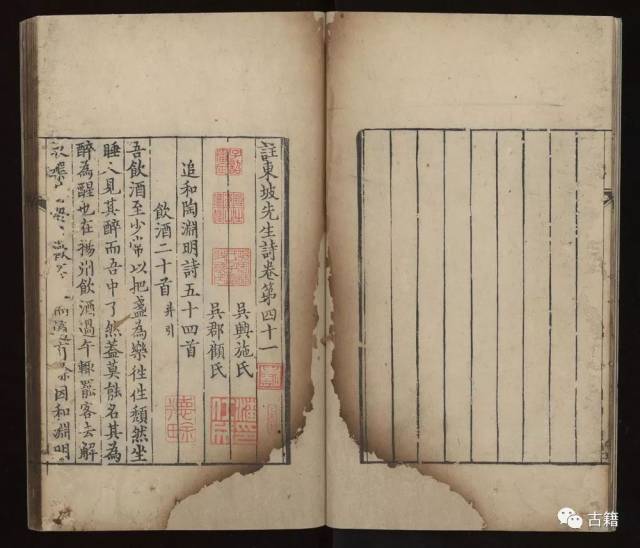 註東坡先生詩卷第四十一
吳興施氏
吳郡顧氏
追和陶淵明詩五十四首
飲酒二十首 并引
吾飲酒至少常以把盞為樂往往頹然坐
睡人見其醉而吾中了然蓋莫能名其為
醉為醒也在揚州飲酒過午輒罷客去解
因和淵明
德畬
古籍